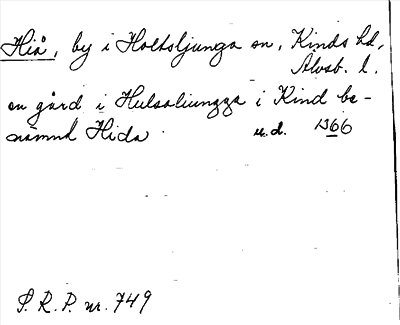 Hiå, by i Holtsljunga sn, Kinds hd,
Älvsb. l.
en gård i Hulsaliungga i Kind be-
nämnd Hida u.d. 1366
S. R. P. nr. 749